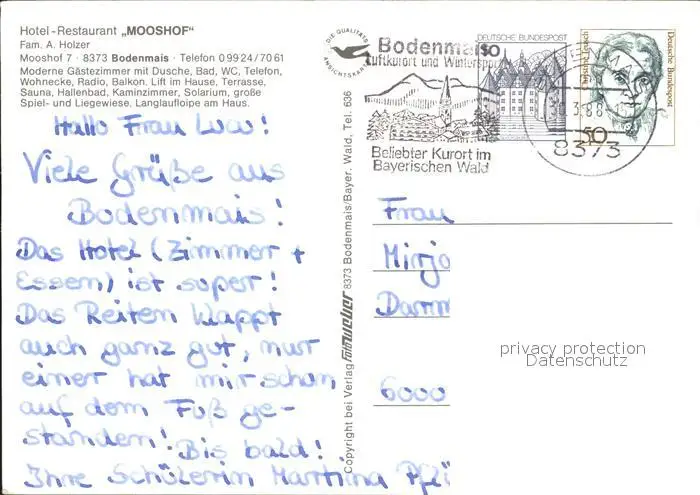 Hotel-Restaurant „MOOSHOF“
Fam. A. Holzer
Mooshof 7 · 8373 Bodenmais · Telefon 09924/7061
Moderne Gästezimmer mit Dusche, Bad, WC, Telefon,
Wohnecke, Radio, Balkon. Lift im Hause, Terrasse,
Sauna, Hallenbad, Kaminzimmer, Solarium, große
Spiel- und Liegewiese. Langlaufloipe am Haus.
Hallo Frau !
Viele Grüße aus
Bodenmais!
Das Hotel (Zimmer +
Essen) ist super!
Das Reiten klappt
auch ganz gut, nur
einer hat mir schon
auf dem Fuß ge-
standen! Bis bald!
Ihre Schülerin Martina
DIE QUALITÄTS
ANSICHTSKARTE
Copyright bei Verlag foto weber 8373 Bodenmais/Bayer. Wald, Tel. 636
Bodenmais
Luftkurort und Wintersport
Beliebter Kurort im
Bayerischen Wald
DEUTSCHE BUNDESPOST
Deutsche Bundespost
50
8373
Frau
Mirjo
Darm
6000
privacy protection
Datenschutz